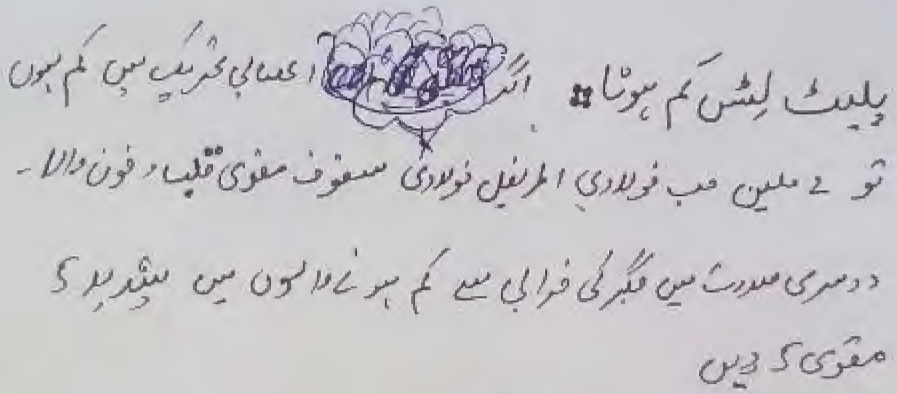 پلیٹ لٹس کم ہونا اگر اعصابی تحریک میں کم ہوں
تو 2 ملین حب فولادی اطریفل فولادی سفوف مقوی قلب و خون والا۔
دوسری صورت میں جگر کی خرابی سے کم ہونے والوں میں شدید 5
مقوی 5 دیں